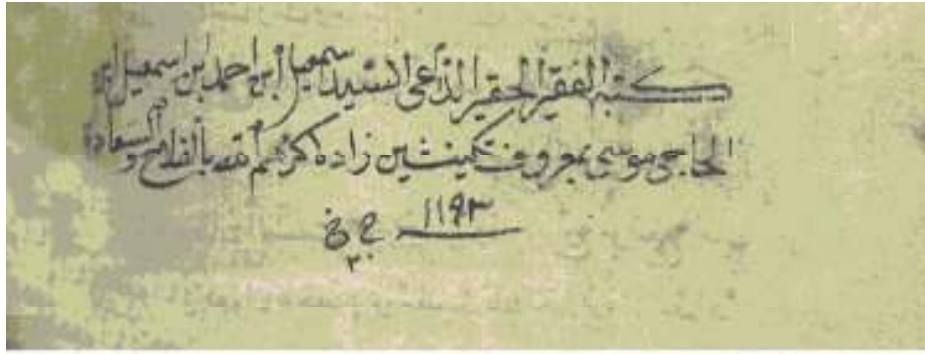 كتبه الفقير الحقير الداعى السيد اسمعيل ابن احمد بن اسمعيل ابن
الحاجى موسى بمعروف زاده كرمهم الله بالفلاح والسعادة
١١٩٣